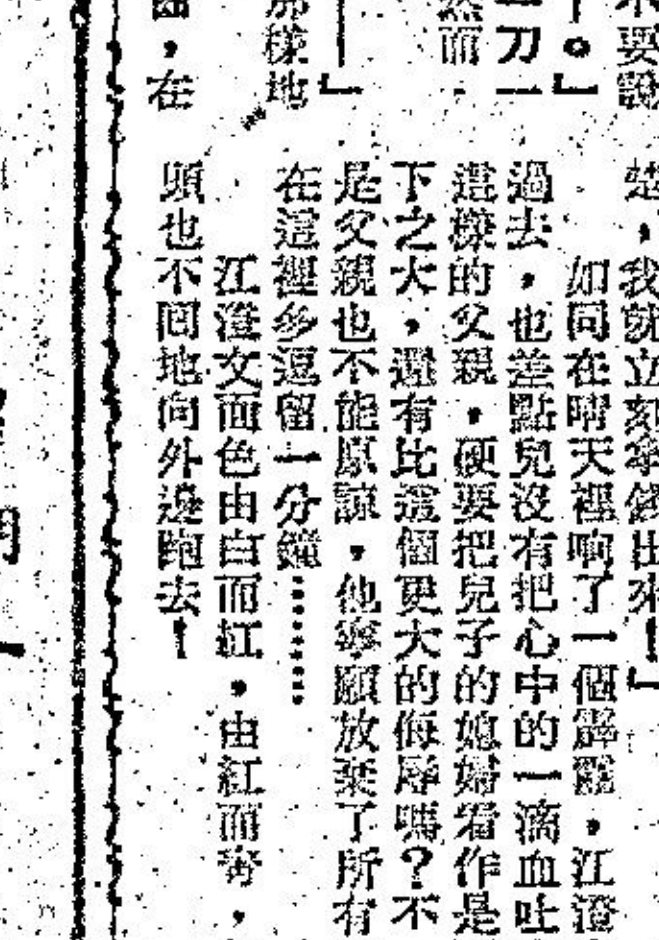 不要說
。」
刀一
然而
」
那樣地
，在
楚，我就立刻拿錢出來！」
如同在晴天裡响了一個霹靂，江澄
過去，也差點兒沒有把心中的一滴血吐
這樣的父親，硬要把兒子的媳婦看作是
下之大，還有比這個更大的侮辱嗎？不
是父親也不能原諒，他寧願放棄了所有
在這裡多逗留一分鐘………
江澄文面色由白而紅，由紅而青，
頭也不回地向外邊跑去！